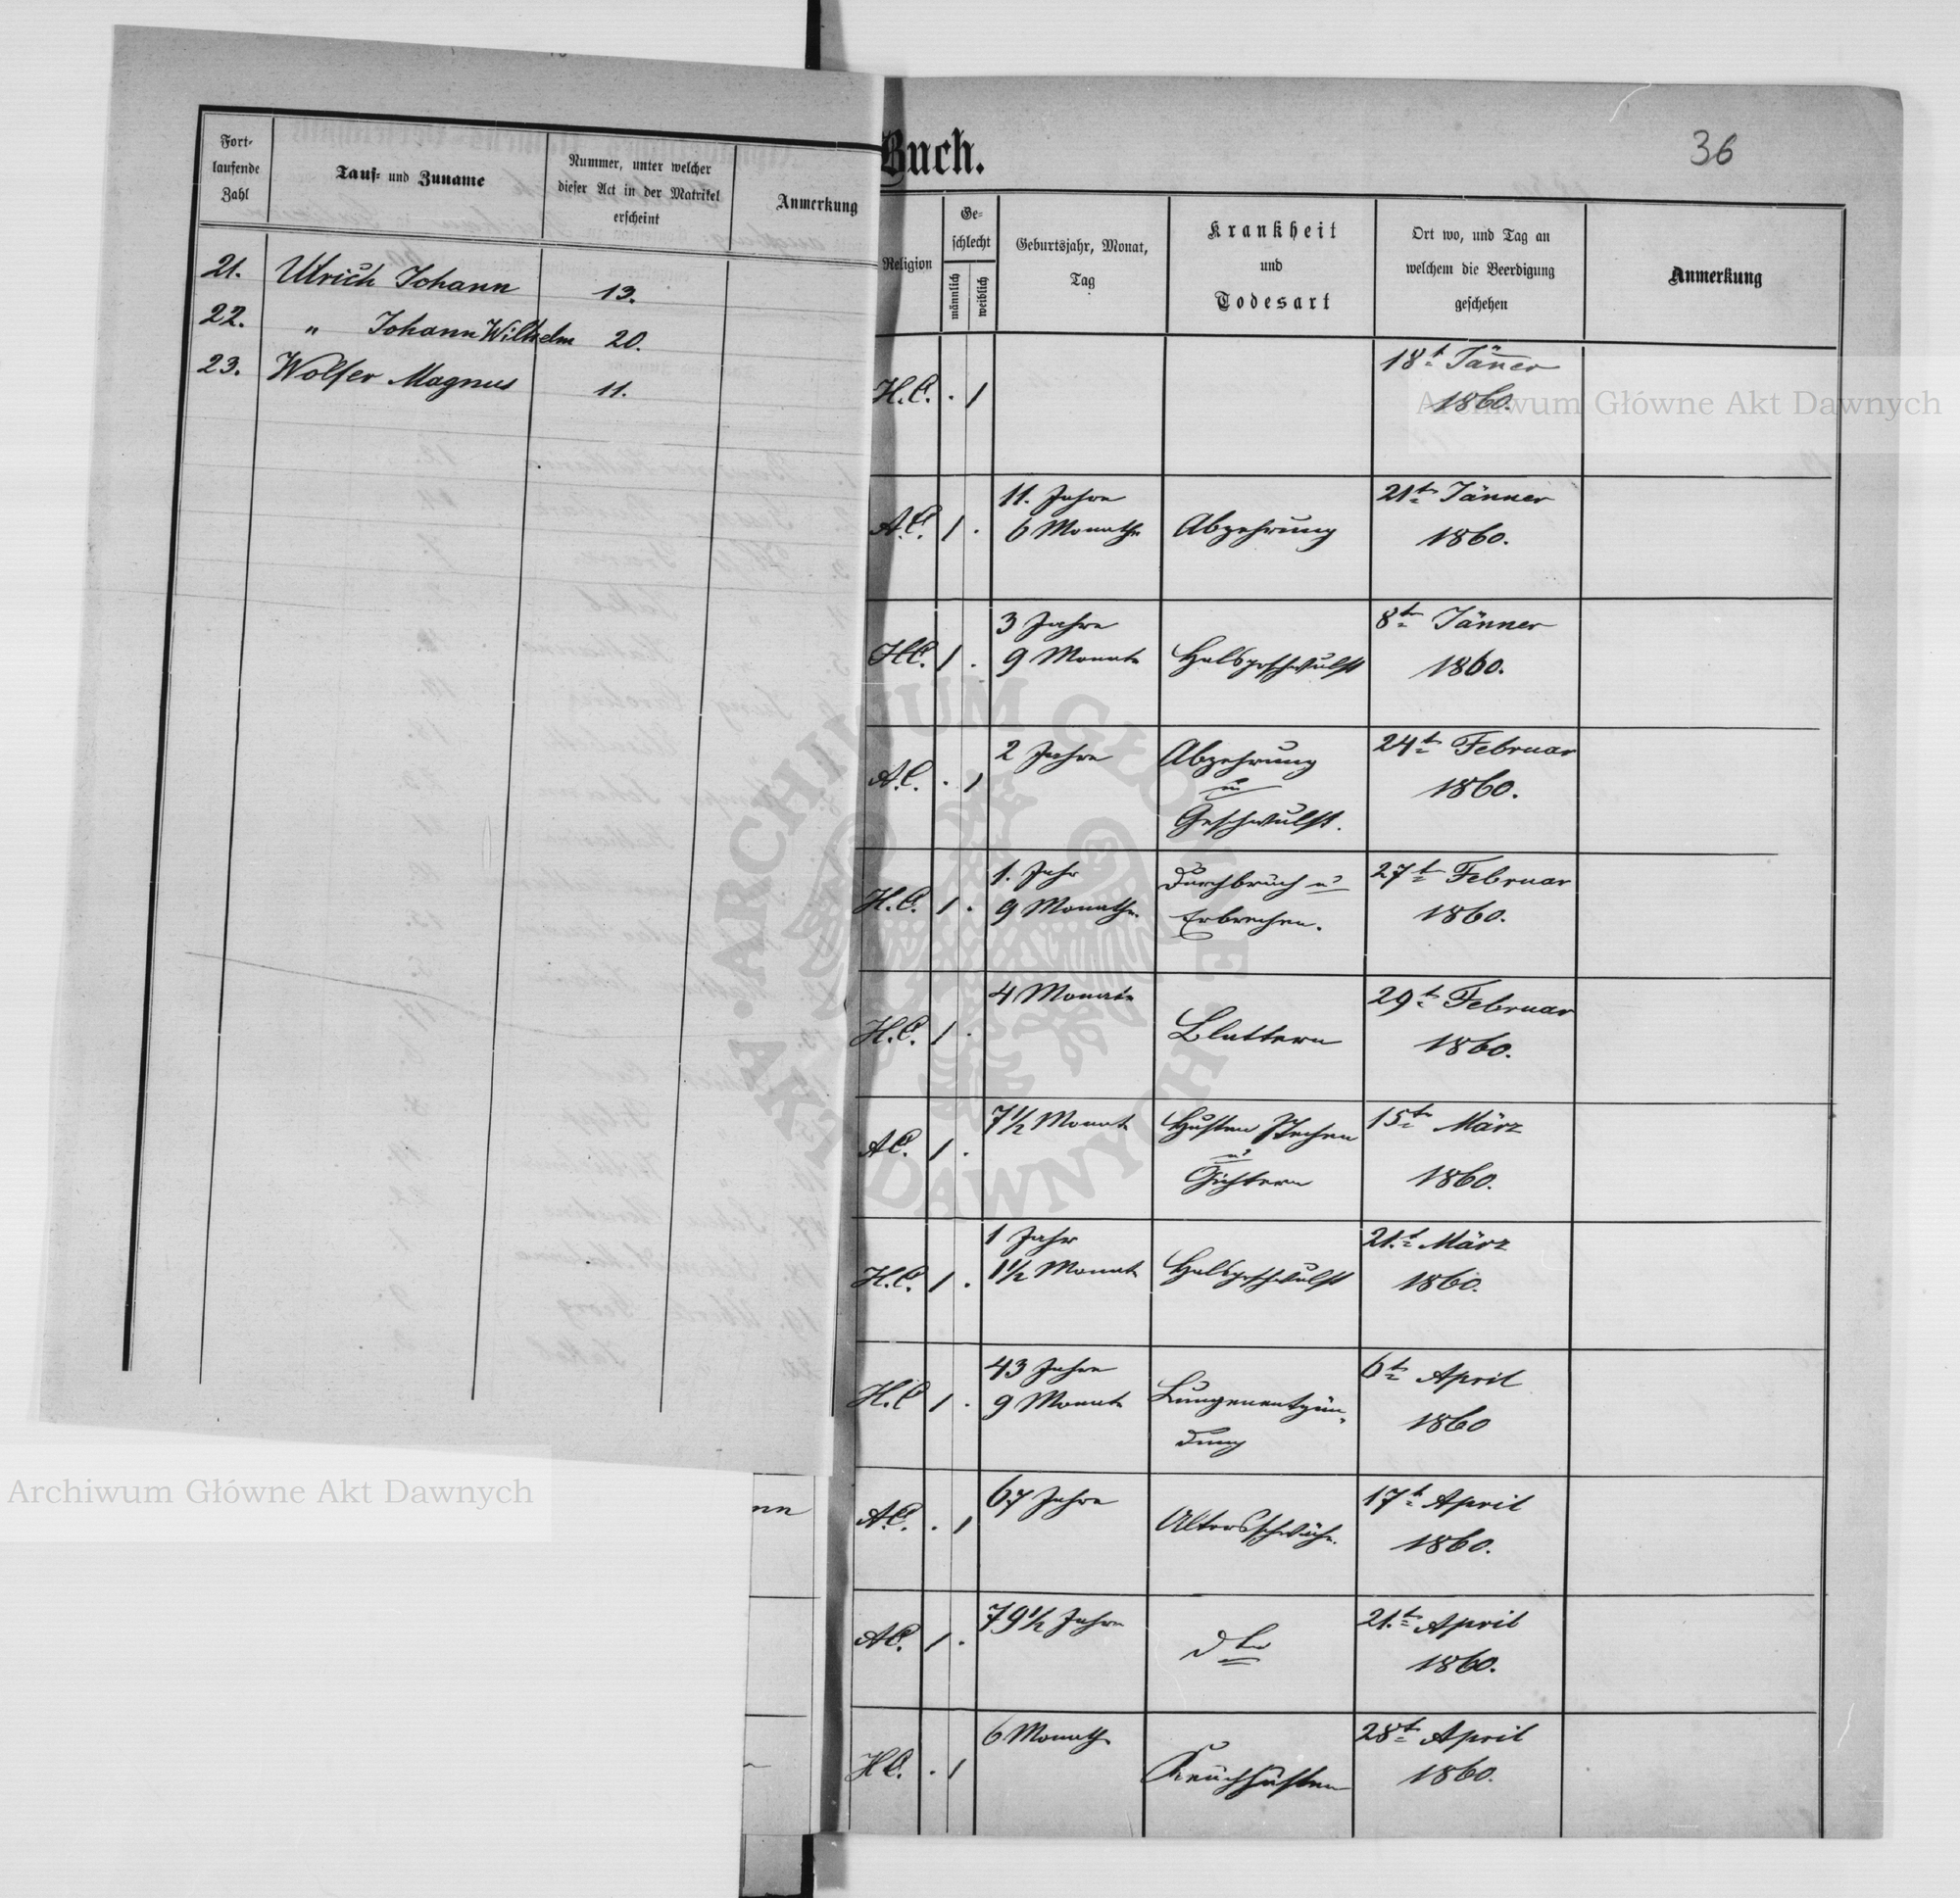 Fort-
laufende
Zahl
Tauf- und Zuname
Nummer, unter welcher
dieser Act in der Matrikel
erscheint
Anmerkung
21. Ulrich Johann 13.
22. " Johann Wilhelm 20.
23. Wolfer Magnus 11.
Buch.
36
Religion
Ge-
schlecht
männlich
weiblich
Geburtsjahr, Monat,
Tag
Krankheit
und
Todesart
Ort wo, und Tag an
welchem die Beerdigung
geschehen
Anmerkung
18t Jänner
H.C. . 1 1860.
11. Jahre 21t Jänner
A.C. 1 . 6 Monathe Abzehrung 1860.
3 Jahre 8t Jänner
H.C. 1 . 9 Monate Halsgeschwulst 1860.
2 Jahre Abzehrung 24t Februar
A.C. . 1 u 1860.
Geschwulst.
1. Jahr Durchbruch u 27t Februar
H.C. 1 . 9 Monathe Erbrechen. 1860.
4 Monate 29t Februar
H.C. 1 . Blattern 1860.
7 1/2 Monate Husten Stechen 15t März
A.C. 1 . u
Gichtern 1860.
1 Jahr 21.t März
H.C. 1 . 1 1/2 Monate Halsgeschwulst 1860.
43 Jahre 6t April
H.C 1 . 9 Monate Lungenentzün- 1860
dung
67 Jahre 17t April
A.C. . 1 Altersschwäche. 1860.
79 1/2 Jahre 21.t April
A.C. 1 . dto 1860.
6 Monathe 28t April
H.C. . 1 Keuchhusten 1860.
nn
Archiwum Główne Akt Dawnych
Archiwum Główne Akt Dawnych
ARCHIWUM GŁÓWNE AKT DAWNYCH